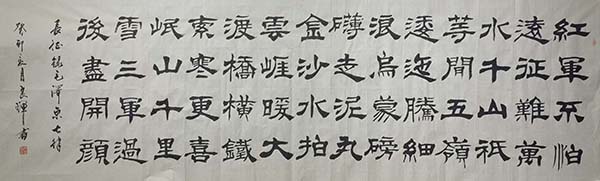 紅軍不怕
遠征難萬
水千山衹
等閒五嶺
逶迤騰細
浪烏蒙磅
礴走泥丸
金沙水拍
雲崕暖大
渡橋橫鐵
索寒更喜
岷山千里
雪三軍過
後盡開顏
長征録毛澤東七律
癸卯月輝書